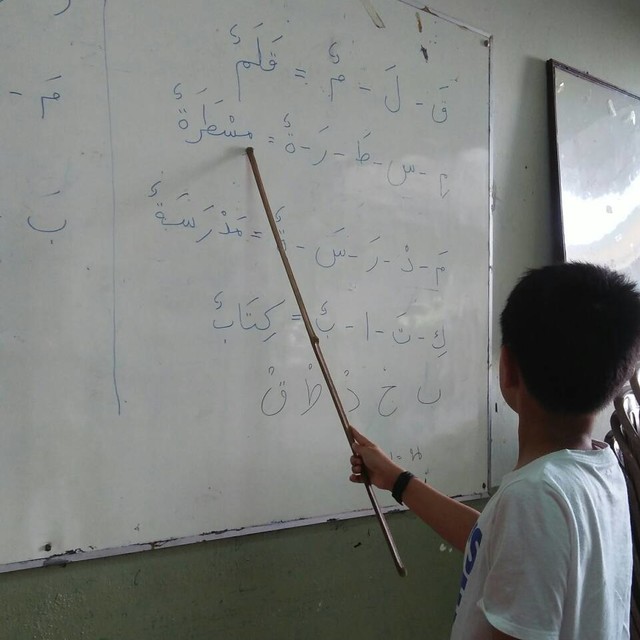 قَ - لَ - مٌ = قَلَمٌ
مِ - س - طَ - رَ - ةٌ = مِسْطَرَةٌ
مَ - دْ - رَ - سَ - ةٌ = مَدْرَسَةٌ
كِ - تَ - ا - بٌ = كِتَابٌ
مَ -
بَ -